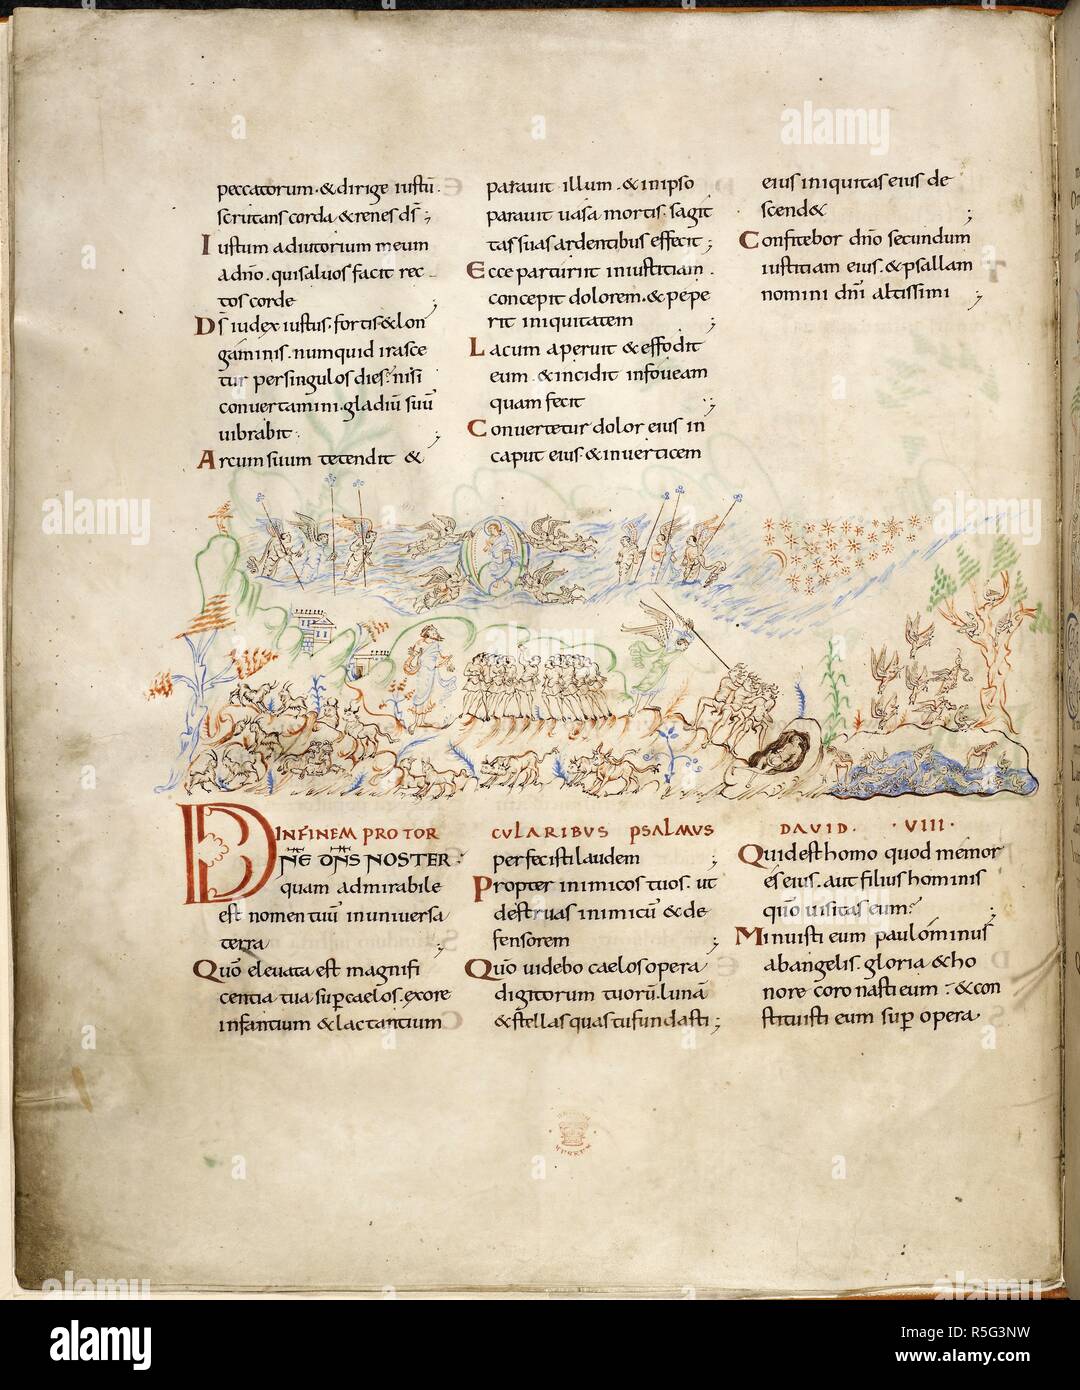 peccatorum·&dirige iustū·
scrutans corda·&renes ds̄;
Iustum adiutorium meum
adn̄o·quisaluos facit rec
tos corde ;
Ds̄ iudex iustus·fortis·&lon
gaminis·numquid irasce
tur persingulos dies·nisi
conuertamini·gladiū suū
uibrabit· ;
Arcum suum tetendit &
parauit illum·&inipso
parauit uasa mortis·sagit
tas suas ardentibus effecit;
Ecce parturiit iniustitiam·
concepit dolorem·&pepe
rit iniquitatem ;
Lacum aperuit &effodit
eum·&incidit infoueam
quam fecit ;
Conuertetur dolor eius in
caput eius·&inuerticem
eius iniquitas eius de
scend& ;
Confitebor dn̄o secundum
iustitiam eius·&psallam
nomini dn̄i altissimi ;
INFINEM PRO TOR
CULARIBUS PSALMUS
DAVID· ·VIII·
DN̄E DN̄S NOSTER·
quam admirabile
est nomen tuū inuniuersa
terra ;
Qūo eleuata est magnifi
centia tua sup̄ caelos·exore
infantium &lactantium
perfecisti laudem ;
Propter inimicos tuos·ut
destruas inimicū &de
fensorem ;
Qūo uidebo caelos opera
digitorum tuorū·lunā
&stellas quas tu fundasti;
Quid est homo quod memor
es eius·aut filius hominis
qūo uisitas eum· ;
Minuisti eum paulominus
abangelis·gloria &ho
nore coronasti eum·&con
stituisti eum sup̄ opera
alamy
Image ID: R5G3NW
www.alamy.com